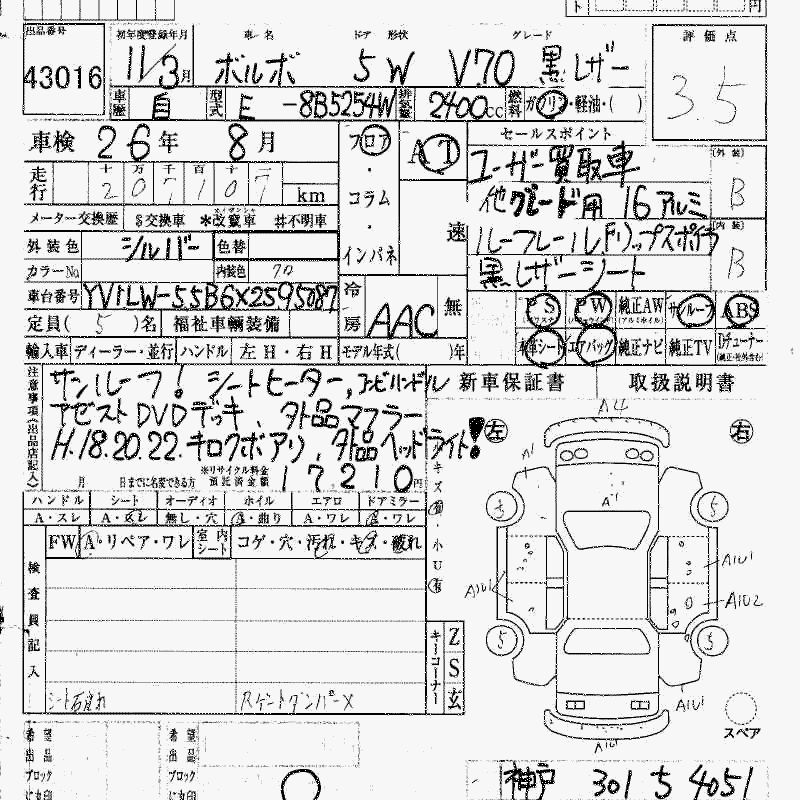 ト 円
出品番号 初年度登録年月 車名 ドア 形状 グレード 評価点
43016 11/3月 ボルボ 5 W V70 黒レザー 3.5
車歴 自 型式 E -8B5254W 排気量 2400cc 燃料 ガソリン・軽油・( )
車検 26年 8月 フロア・コラム・インパネ AT 速 セールスポイント
ユーザー買取車 (外装) B
走行 十 万 千 百 十 一 km
207107
他グレード用 16アルミ
メーター交換歴 $交換車 *改竄車 #不明車 ルーフレール, F.リップスポイラ (内装) B
外装色 シルバー 色替 黒レザーシート
カラーNo. 内装色 70
車台番号 YV1LW-55B6X2595087 冷房 AAC 無 PS PW 純正AW (アルミホイル) サンルーフ ABS
定員( 5 )名 福祉車輌装備
輸入車 ディーラー・並行 ハンドル 左H・右H モデル年式( )年 本革シート エアバッグ 純正ナビ 純正TV Dチューナー (純正・社外含む)
注意事項(出品店記入) サンルーフ! シートヒーター, コンビハンドル 新車保証書 取扱説明書
アゼストDVDデッキ, 外品マフラー
H.18.20.22.キロクボアリ, 外品ヘッドライト!
月 日までに名変できる方 ※リサイクル料金預託済金額 17,210円
ハンドル シート オーディオ ホイル エアロ ドアミラー
A・スレ A・スレ 無し・穴 A・曲り A・ワレ A・ワレ
FW A・リペア・ワレ 室内シート コゲ・穴・汚れ・キズ・破れ
検査員記入
シート右破れ
キズ 小U
キーコーナー Z S 玄
左 右
A4
A1
A1
3 5
A1U1 A1U1
A1U2
5 5
A1U1
A1U1
スペア
希望出品ブロック 希望出品ブロック
に丸印 に丸印
神戸 301 ち 4051